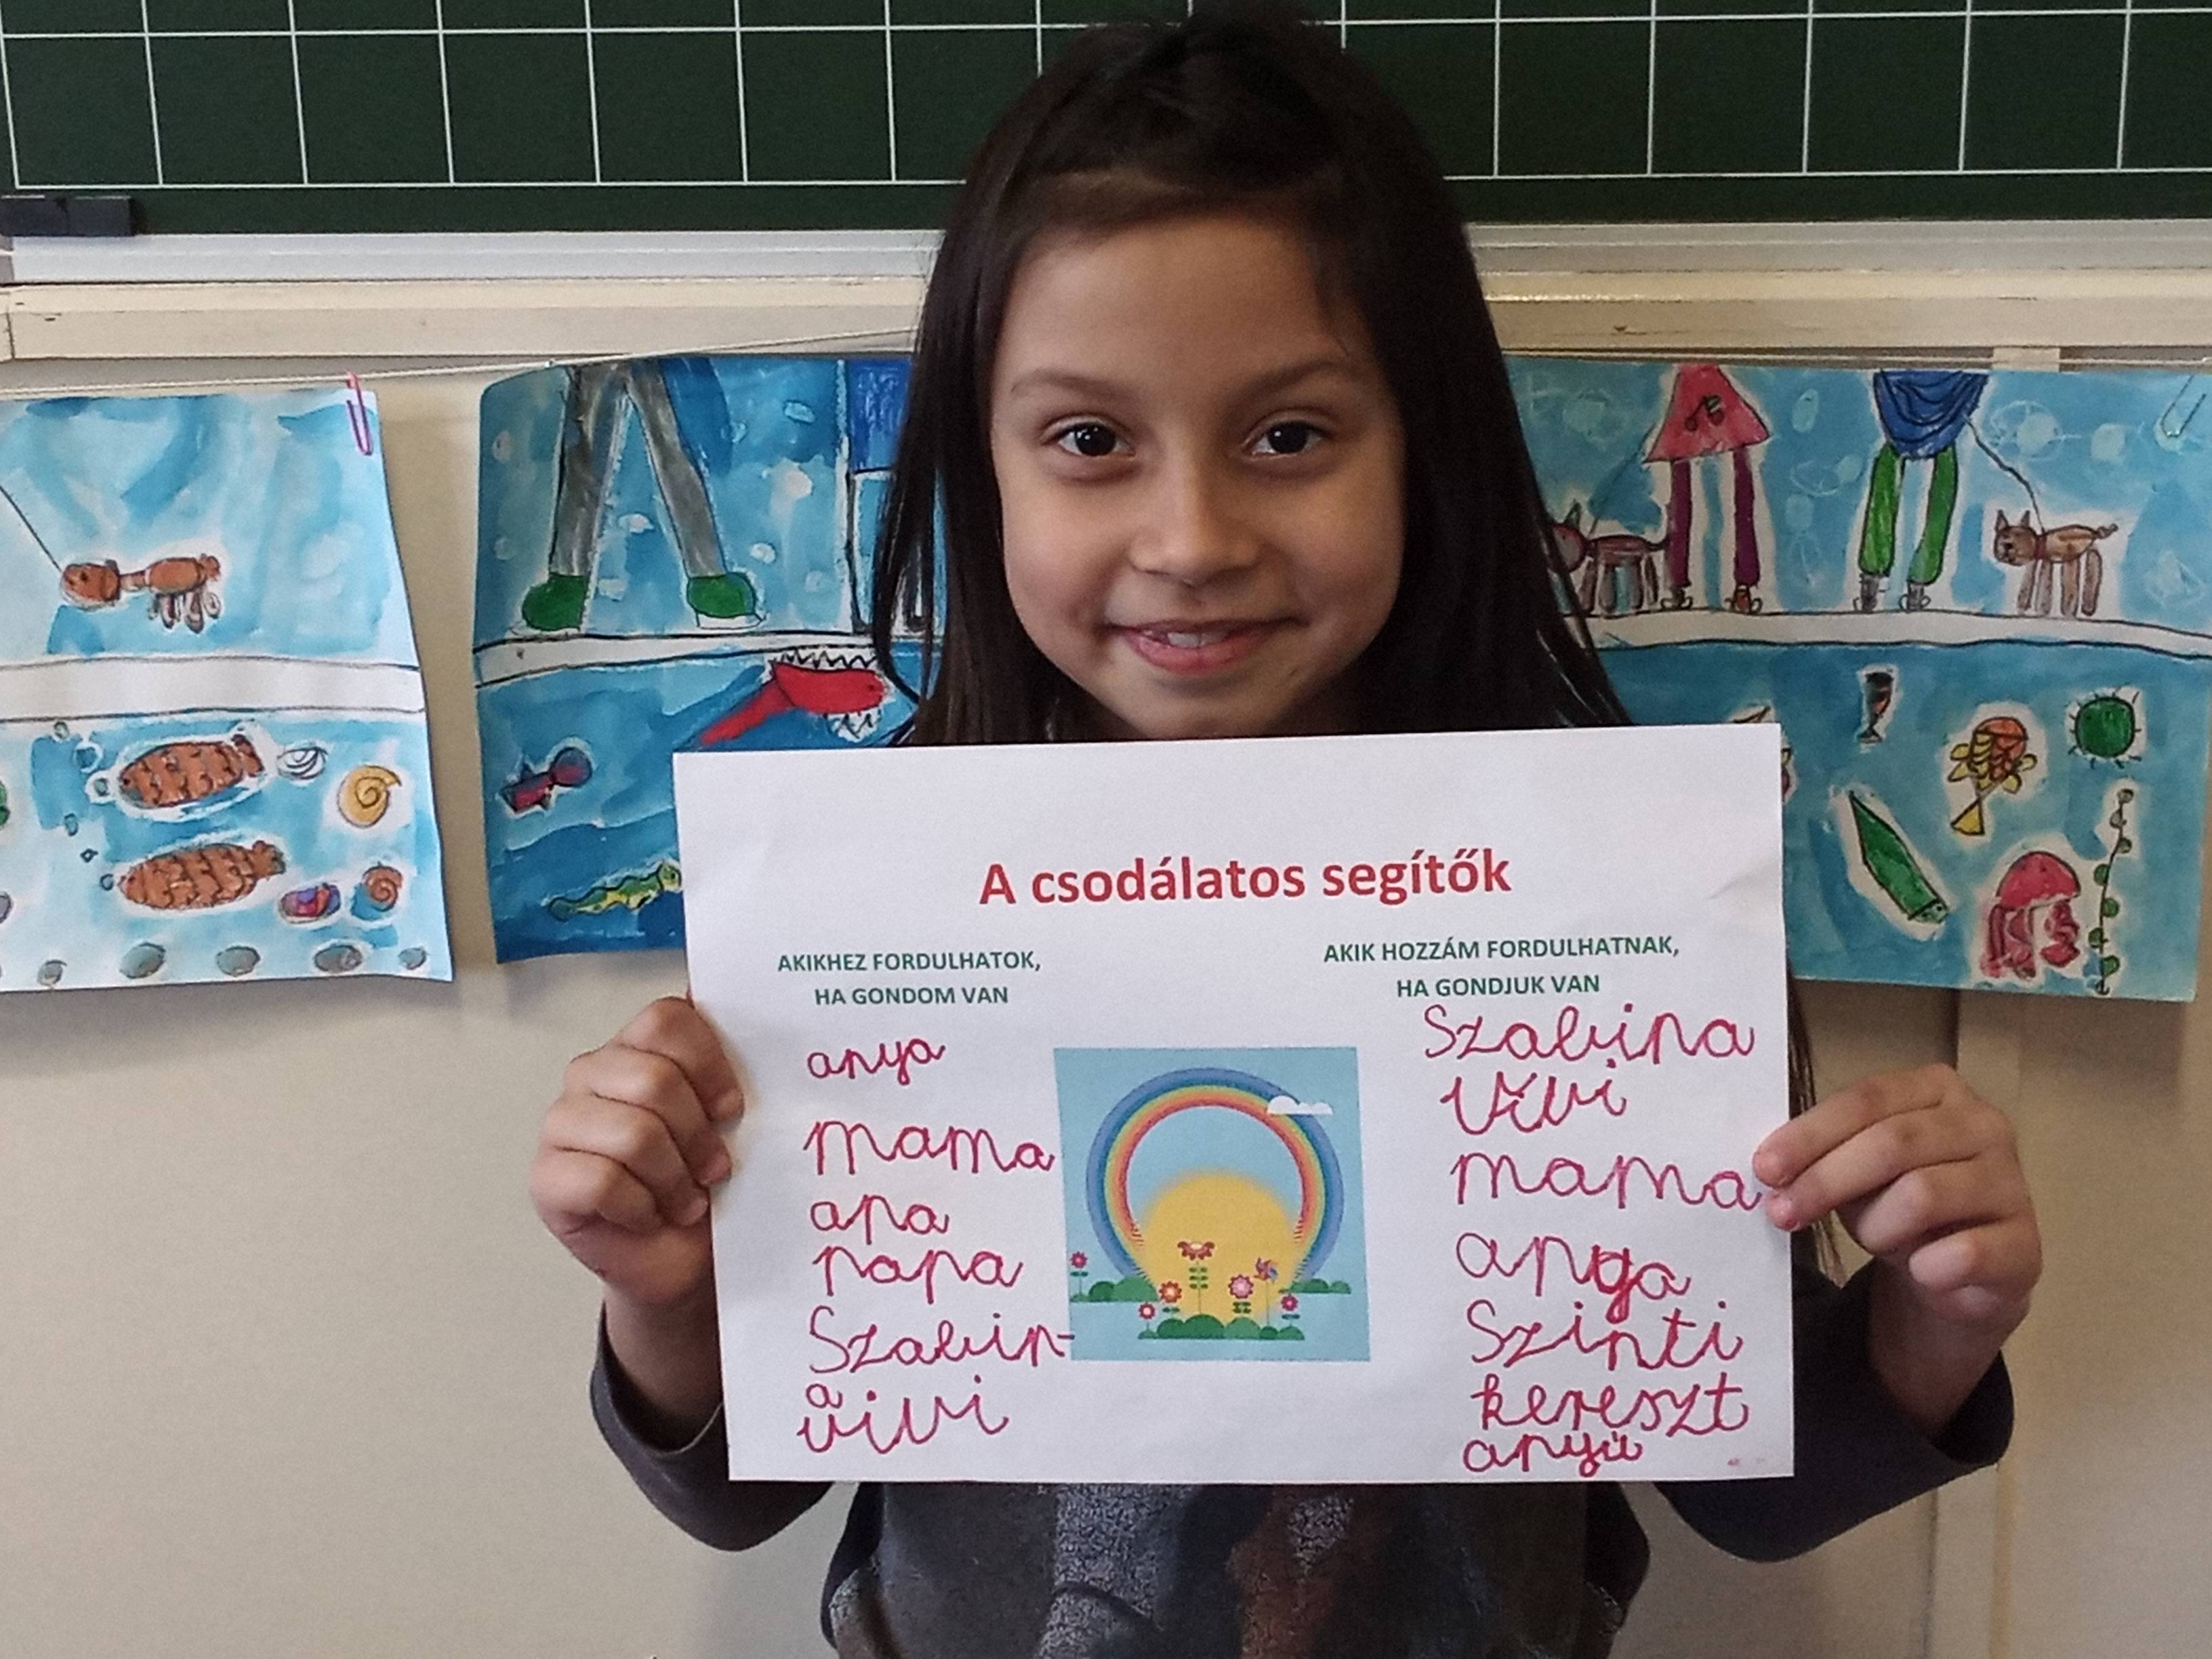 A csodálatos segítők
AKIKHEZ FORDULHATOK,
HA GONDOM VAN
anya
mama
apa
papa
Szabin-
a
vivi
AKIK HOZZÁM FORDULHATNAK,
HA GONDJUK VAN
Szabina
Vivi
mama
anya
Szinti
kereszt
anyu